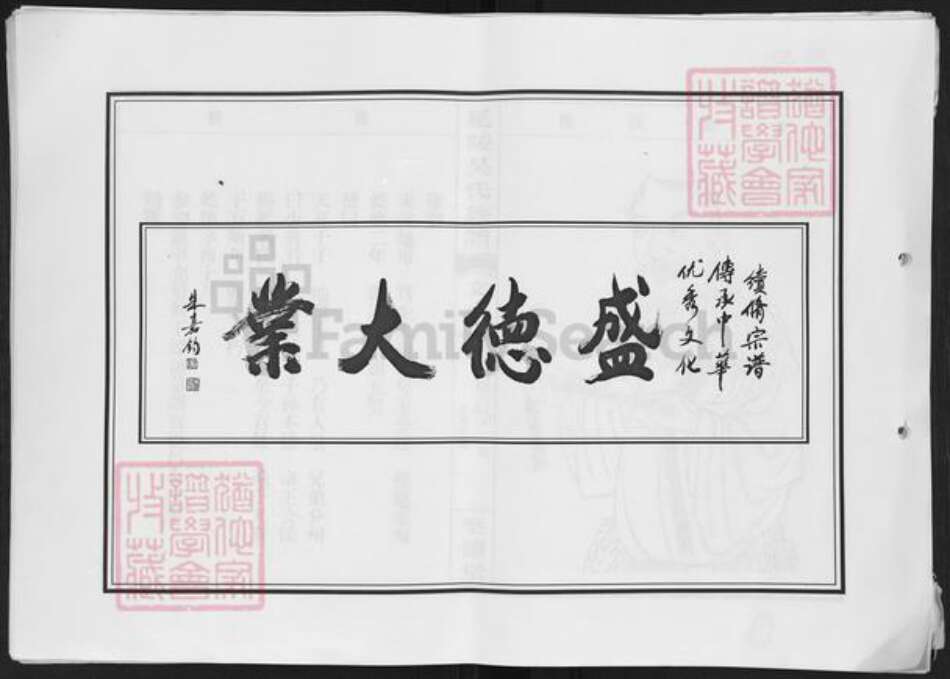 續脩宗谱
傳承中華
优秀文化
盛德大業
朱嘉钧
猶他家
譜學會
收藏
猶他家
譜學會
收藏
FamilySearch